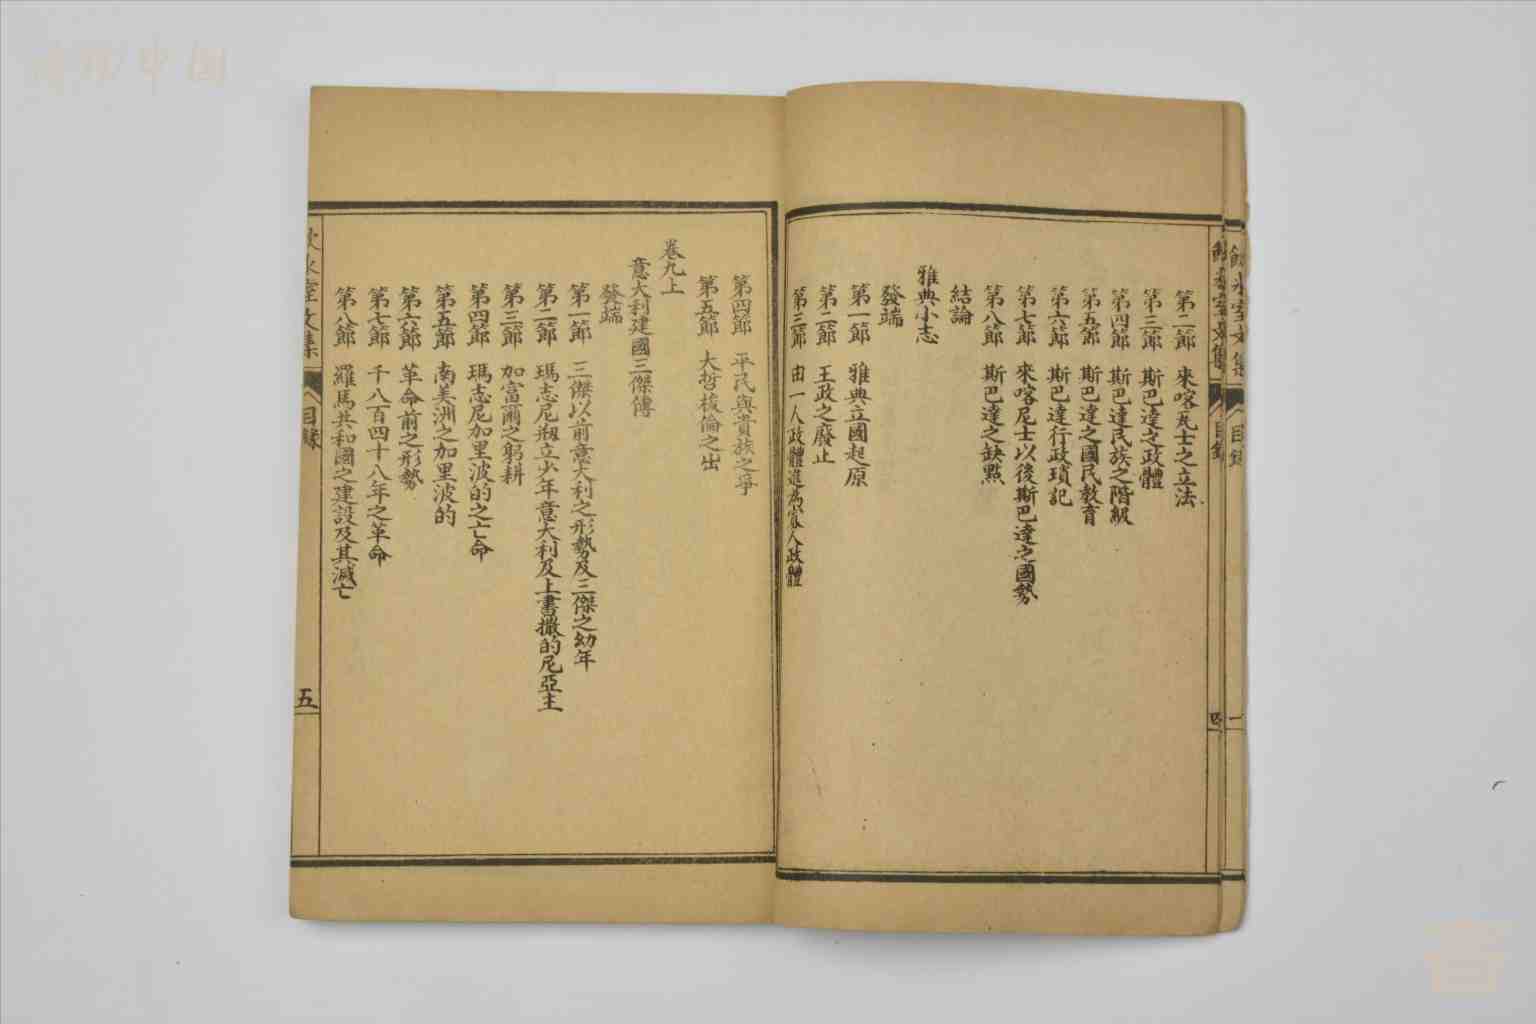 第二節 來喀瓦士之立法
第三節 斯巴達之政體
第四節 斯巴達民族之階級
第五節 斯巴達之國民教育
第六節 斯巴達行政瑣記
第七節 來喀尼士以後斯巴達之國勢
第八節 斯巴達之缺點
結論
雅典小志
發端
第一節 雅典立國起原
第二節 王政之廢止
第三節 由一人政體進為寡人政體
第四節 平民與貴族之爭
第五節 大哲梭倫之出
卷九上
意大利建國三傑傳
發端
第一節 三傑以前意大利之形勢及三傑之幼年
第二節 瑪志尼剏立少年意大利及上書撒的尼亞主
第三節 加富爾之躬耕
第四節 瑪志尼加里波的之亡命
第五節 南美洲之加里波的
第六節 革命前之形勢
第七節 千八百四十八年之革命
第八節 羅馬共和國之建設及其滅亡
冰室文集 目錄 五